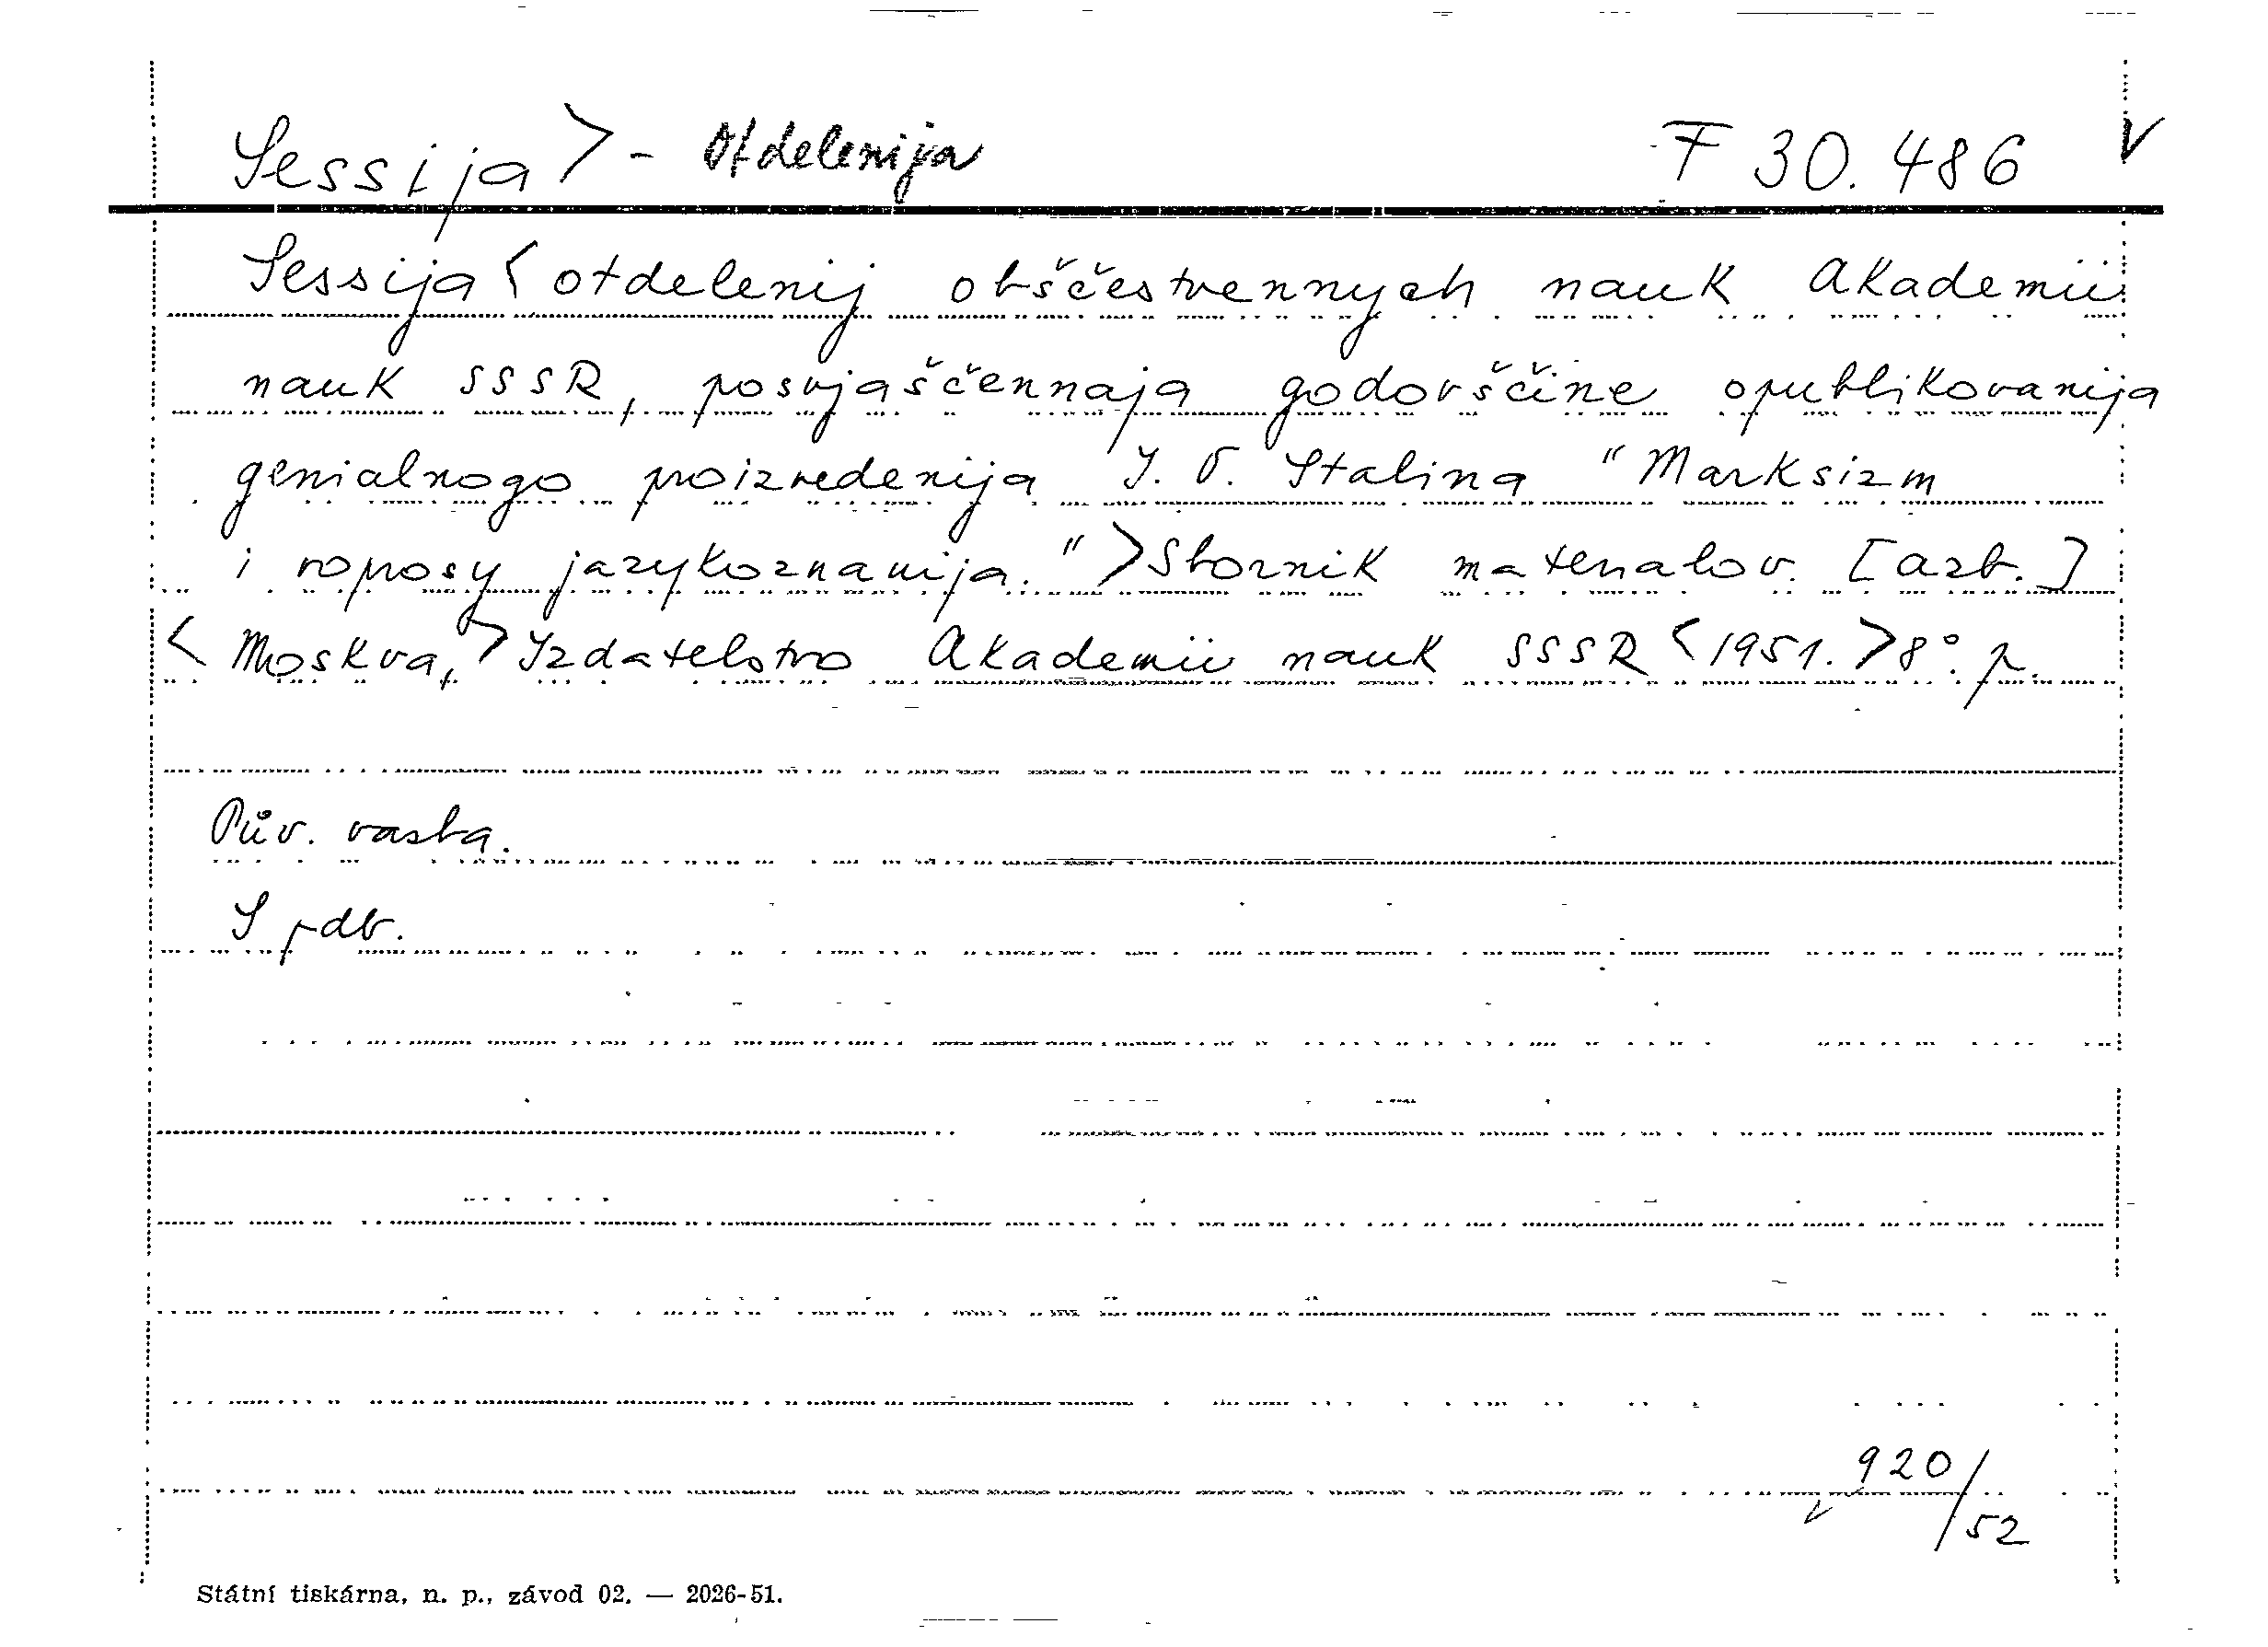 Sessija > - Otdelenija F 30.486 V
Sessija < otdelenij obščestvennych nauk Akademii
nauk SSSR, posvjaščennaja godovščine opublikovanija
genialnogo proizvedenija I. V. Stalina "Marksizm
i voprosy jazykoznanija." > Sbornik materialov. [azb.]
< Moskva, > Izdatelstvo Akademii nauk SSSR < 1951. > 8°. p.
Pův. vazba.
S pdb.
920/52
Státní tiskárna, n. p., závod 02. — 2026-51.